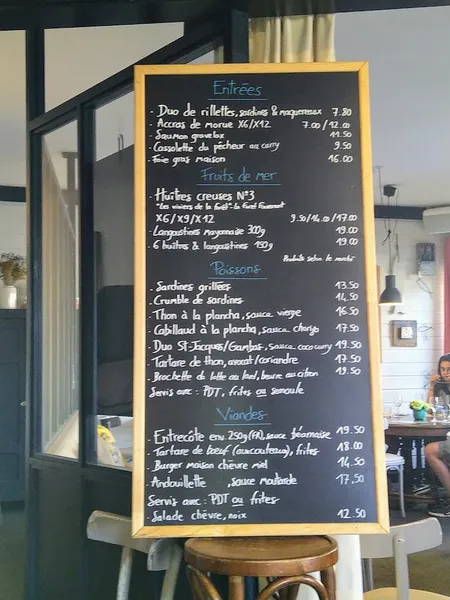 Entrées
- Duo de rillettes, sardines & maquereaux 7.80
- Accras de morue X6/X12 7.00/12.00
- Saumon gravelax 11.50
- Cassolette du pêcheur au curry 9.50
- Foie gras maison 16.00
Fruits de mer
- Huîtres creuses N°3
"Les viviers de la forêt" - La Forêt Fouesnant
X6/X9/X12 9.50/14.00/17.00
- Langoustines mayonnaise 300g 19.00
- 6 huîtres & langoustines 150g 19.00
Produits selon le marché
Poissons
- Sardines grillées 13.50
- Crumble de sardines 14.50
- Thon à la plancha, sauce vierge 16.50
- Cabillaud à la plancha, sauce chorizo 17.50
- Duo St-Jacques/Gambas, sauce coco curry 19.50
- Tartare de thon, avocat/coriandre 17.50
- Brochette de lotte au lard, beurre au citron 19.50
Servis avec : PDT, frites ou semoule
Viandes
- Entrecôte env. 250g (FR), sauce béarnaise 19.50
- Tartare de bœuf (au couteau), frites 18.00
- Burger maison chèvre miel 14.50
- Andouillette , sauce moutarde 17,50
Servis avec : PDT ou frites
- Salade chèvre, noix 12.50